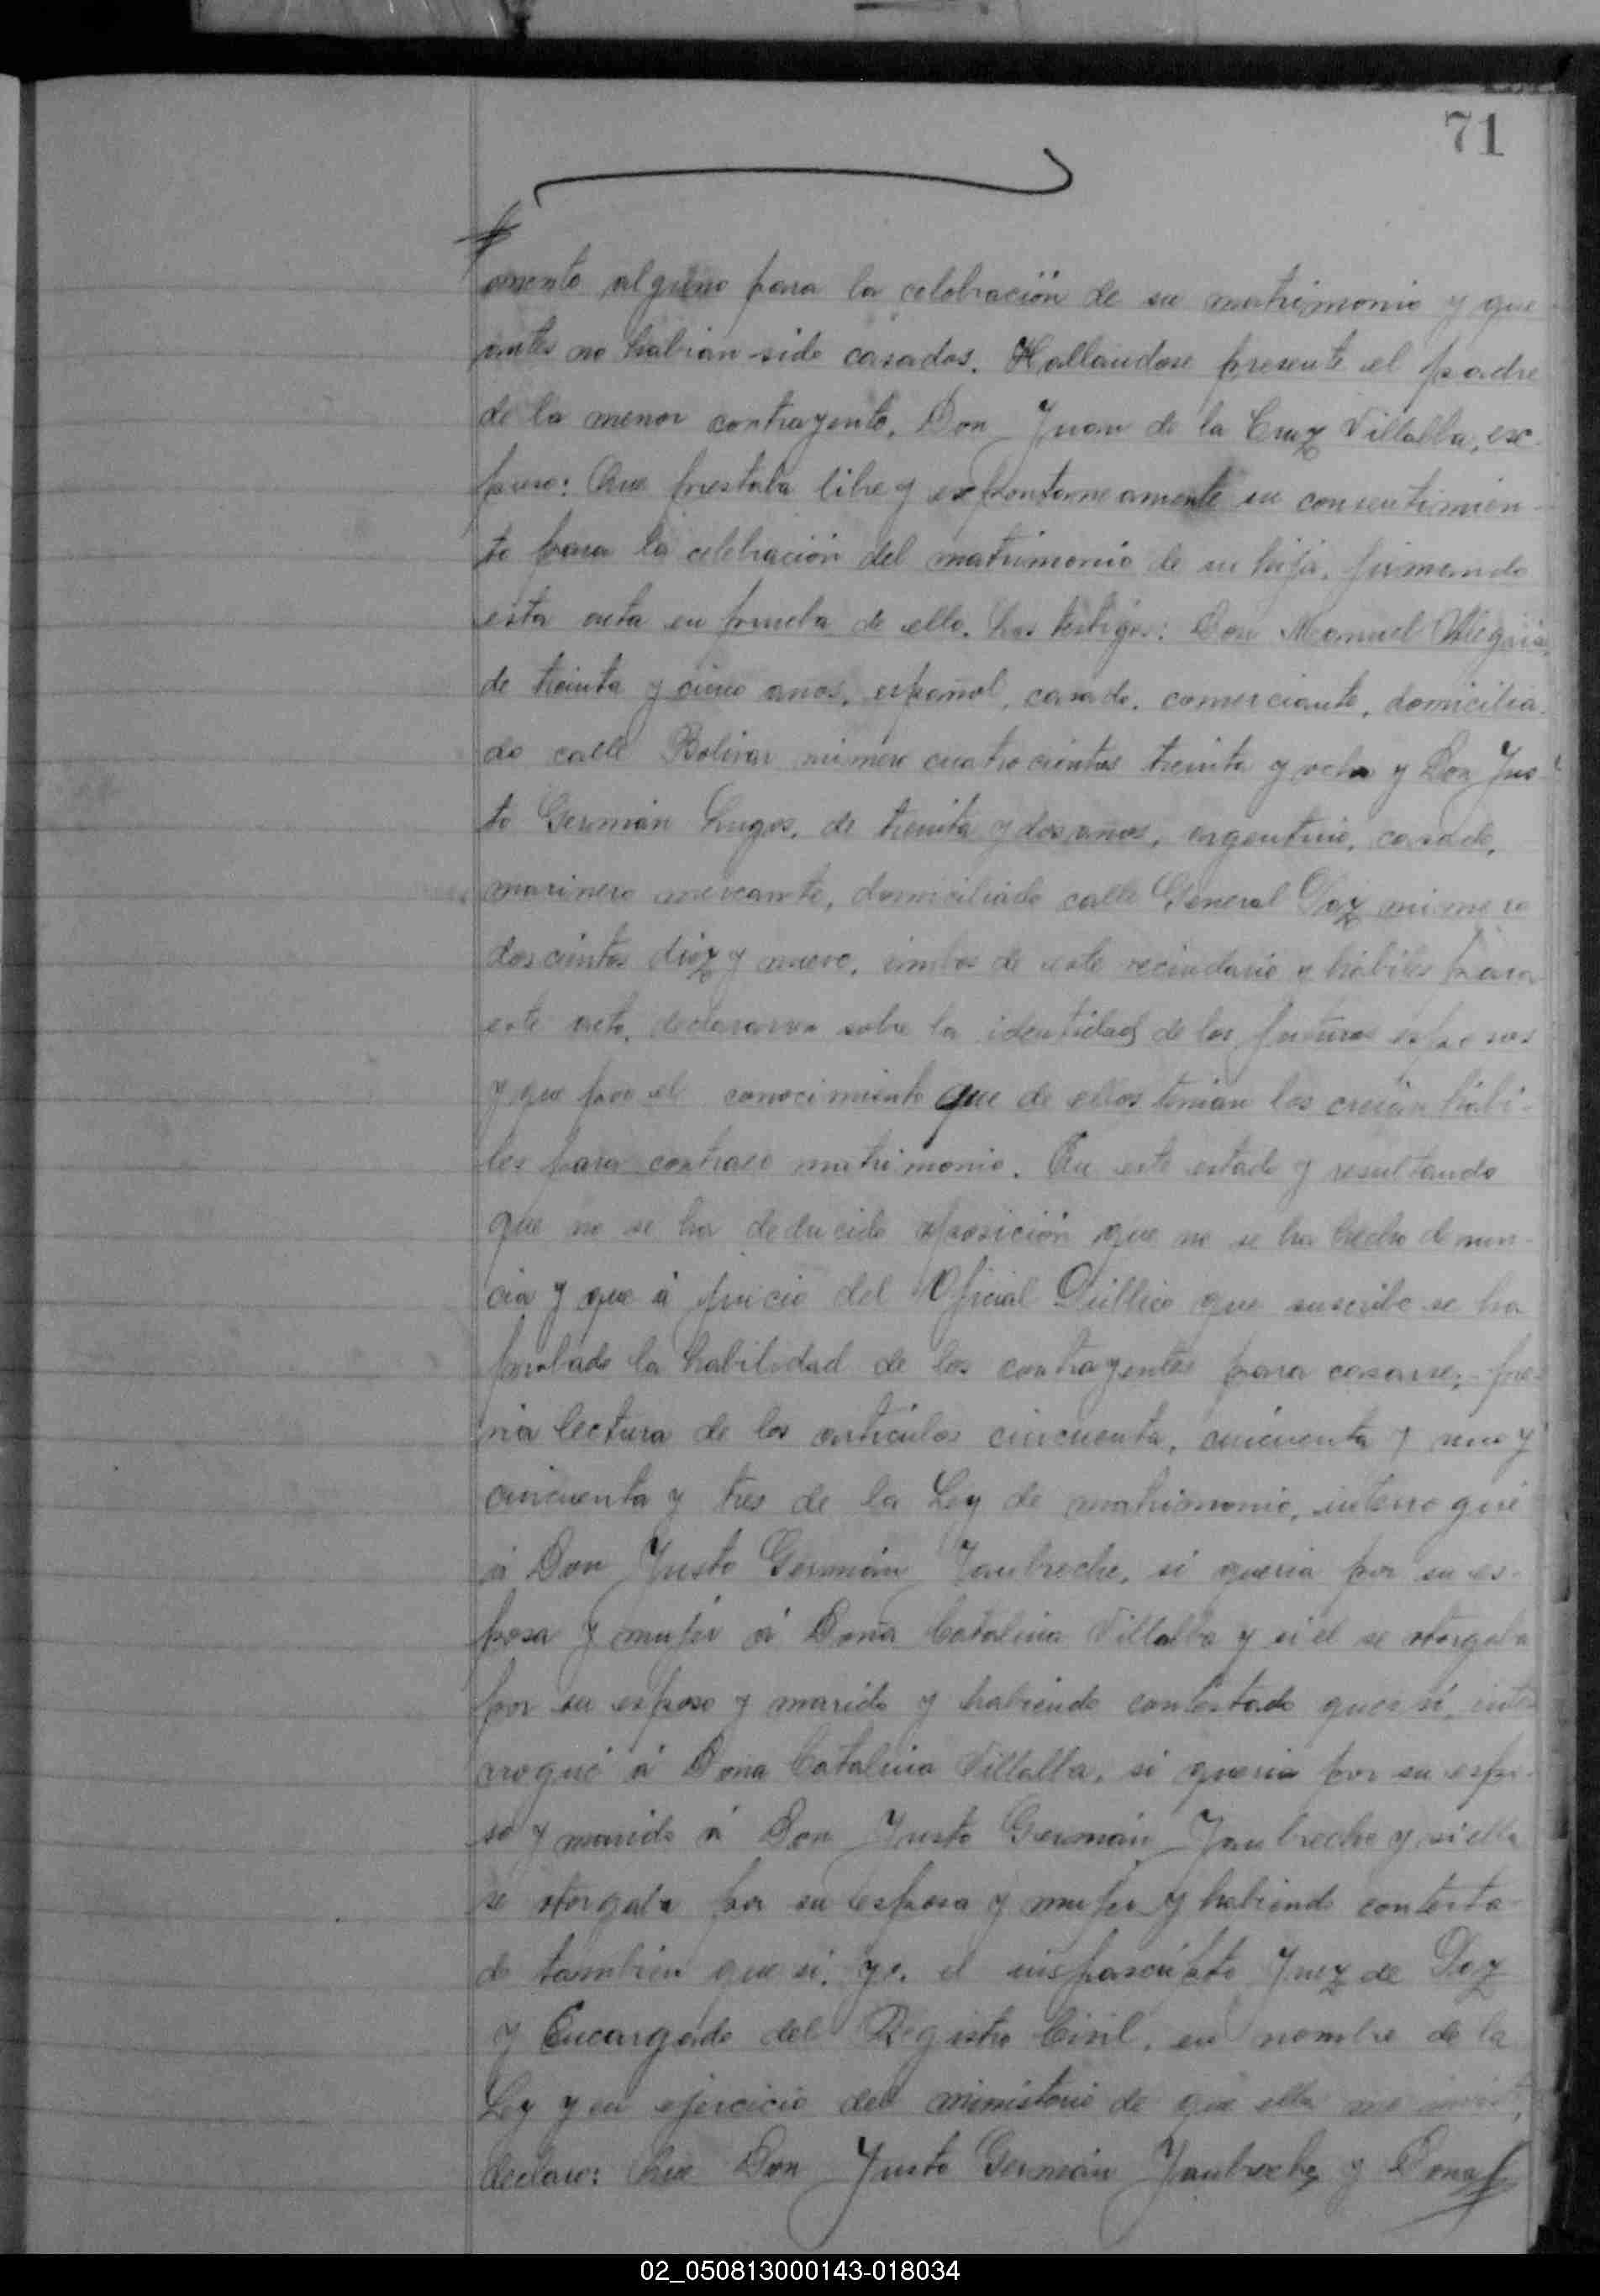 71
mento alguno para la celebración de su matrimonio y que
antes no habian sido casados. Hallandose presente el padre
de la menor contrayente, Don Juan de la Cruz Villalba, ex-
puso: Que prestaba libre y espontaneamente su consentimien-
to para la celebración del matrimonio de su hija, firmando
esta acta en prueba de ello. Los testigos: Don Manuel Alegria,
de treinta y cinco anos, español, casado, comerciante, domicilia-
do calle Bolivar número cuatrocientos treinta y ocho y Don Jus-
to Germán Lugos, de treinta y dos años, argentino, casado,
marinero mercante, domiciliado calle General Paz número
doscientos diez y nueve, ambos de este vecindario y hábiles para
este acto, declararon sobre la identidad de los futuros esposos
y que por el conocimiento que de ellos tenian los creian hábi-
les para contraer matrimonio. En este estado y resultando
que no se ha deducido oposición que no se ha hecho denun-
cia y que á juicio del Oficial Público que suscribe se ha
probado la habilidad de los contrayentes para casarse; pre-
via lectura de los articulos cincuenta, cincuenta y uno y
cincuenta y tres de la Ley de matrimonio, interrogué
á Don Justo Germán Jaubreche, si queria por su es-
posa y mujer á Doña Catalina Villalba y si él se otorgaba
por su esposo y marido y habiendo contestado que si, inte-
rrogué á Doña Catalina Villalba, si queria por su espo-
so y marido á Don Justo Germán Jaubreche y si ella
se otorgaba por su esposa y mujer y habiendo contesta-
do tambien que si, yo, el infrascripto Juez de Paz
y Encargado del Registro Civil, en nombre de la
Ley y en ejercicio del ministerio de que ella me
declaro: Que Don Justo Germán Jaubreche y Dona
02_050813000143-018034